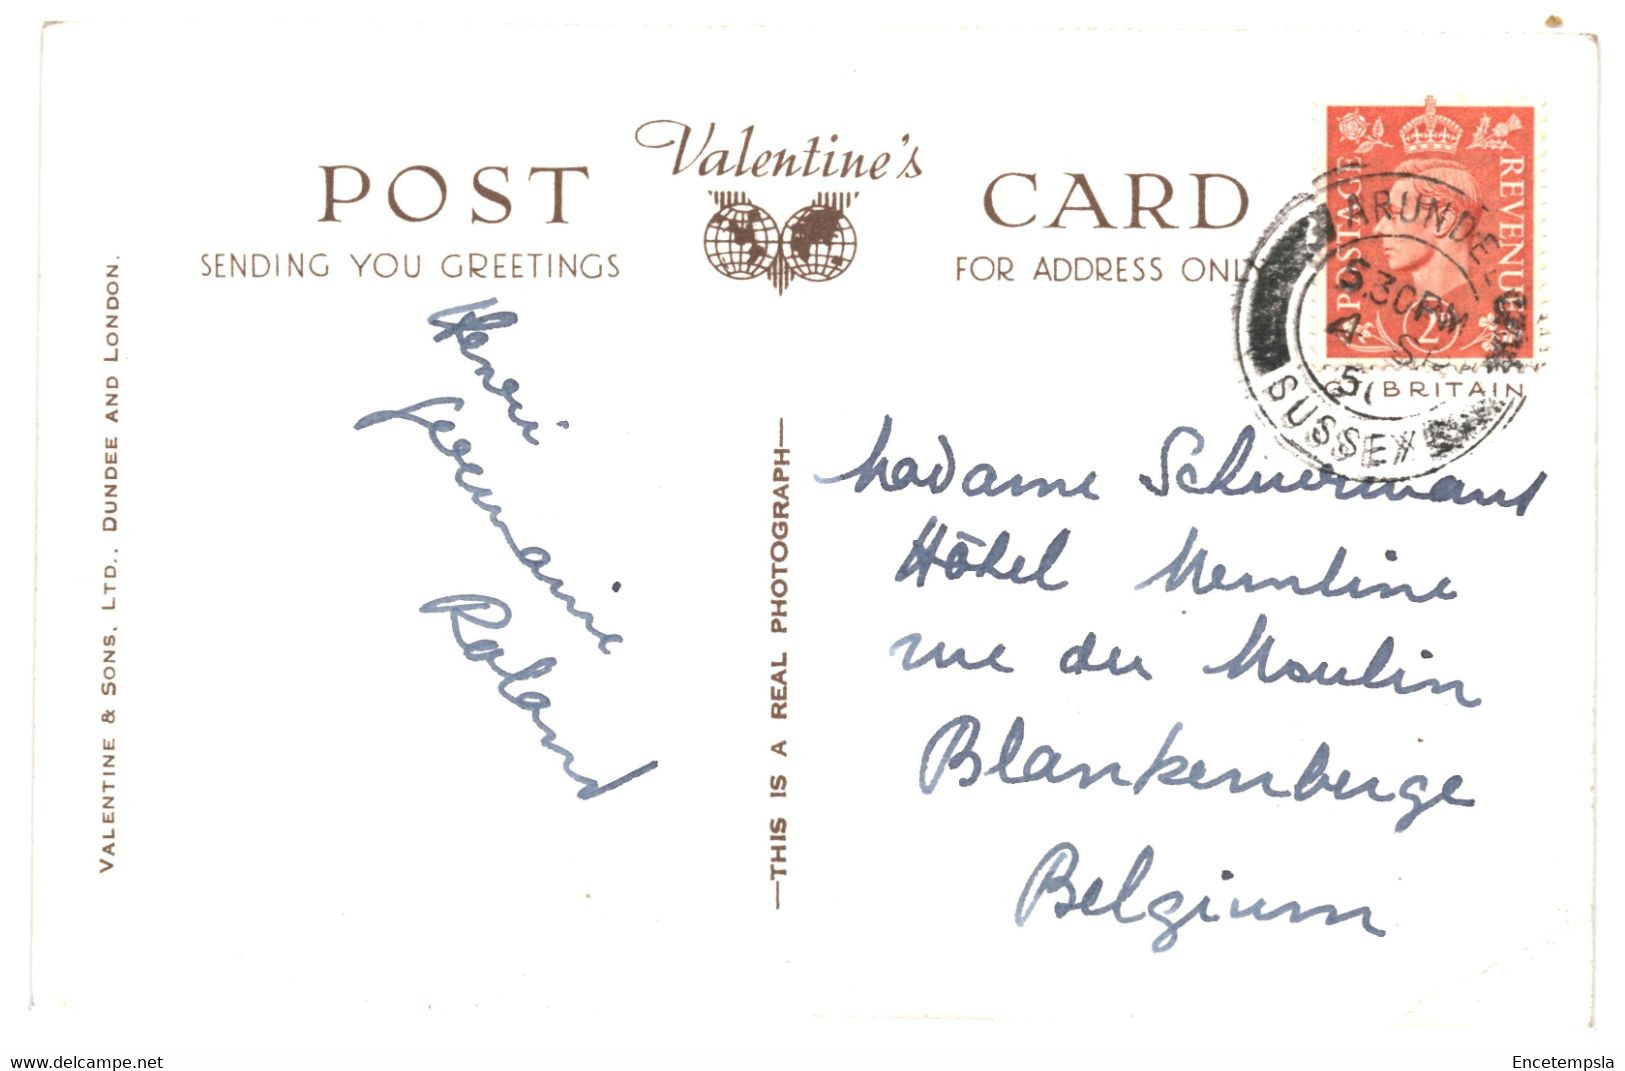 Valentine's
POST CARD
SENDING YOU GREETINGS
FOR ADDRESS ONLY
POSTAGE
REVENUE
2D
ARUNDEL
5.30PM
4 SE
SUSSEX
GT BRITAIN
VALENTINE & SONS, LTD., DUNDEE AND LONDON.
Henri
Germaine
Roland
—THIS IS A REAL PHOTOGRAPH—
Madame Schuermans
Hôtel Memline
rue du Moulin
Blankenberge
Belgium
www.delcampe.net
Encetempsla